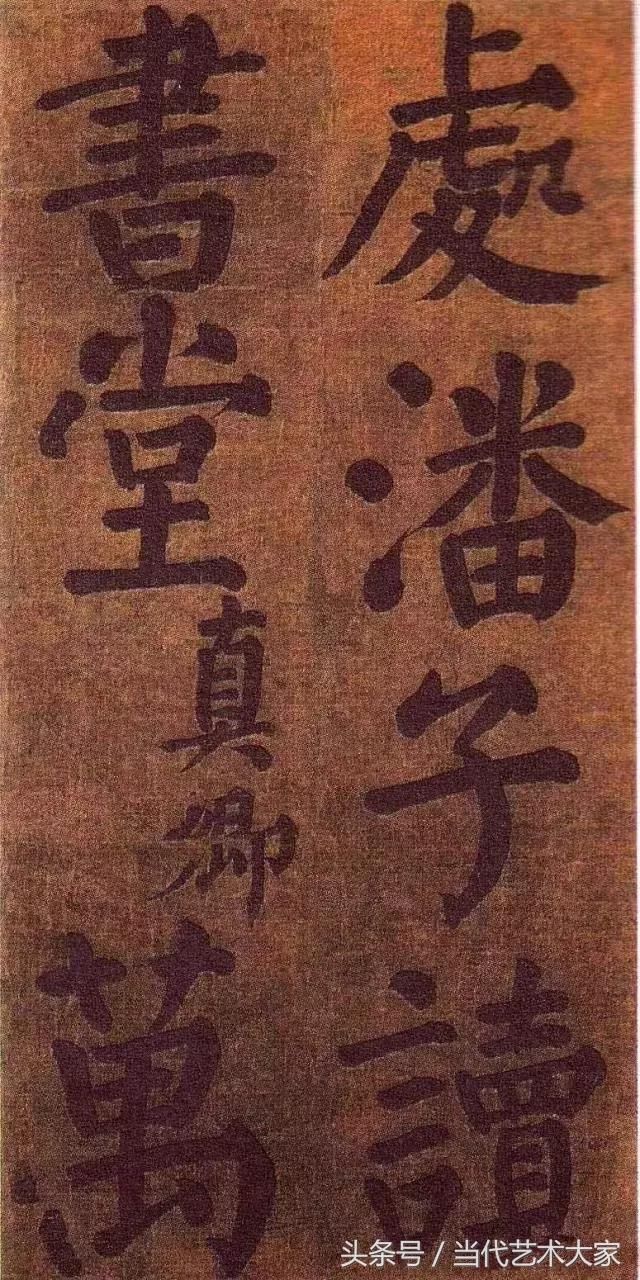 處潘子讀
書堂真卿萬
头条号 / 当代艺术大家